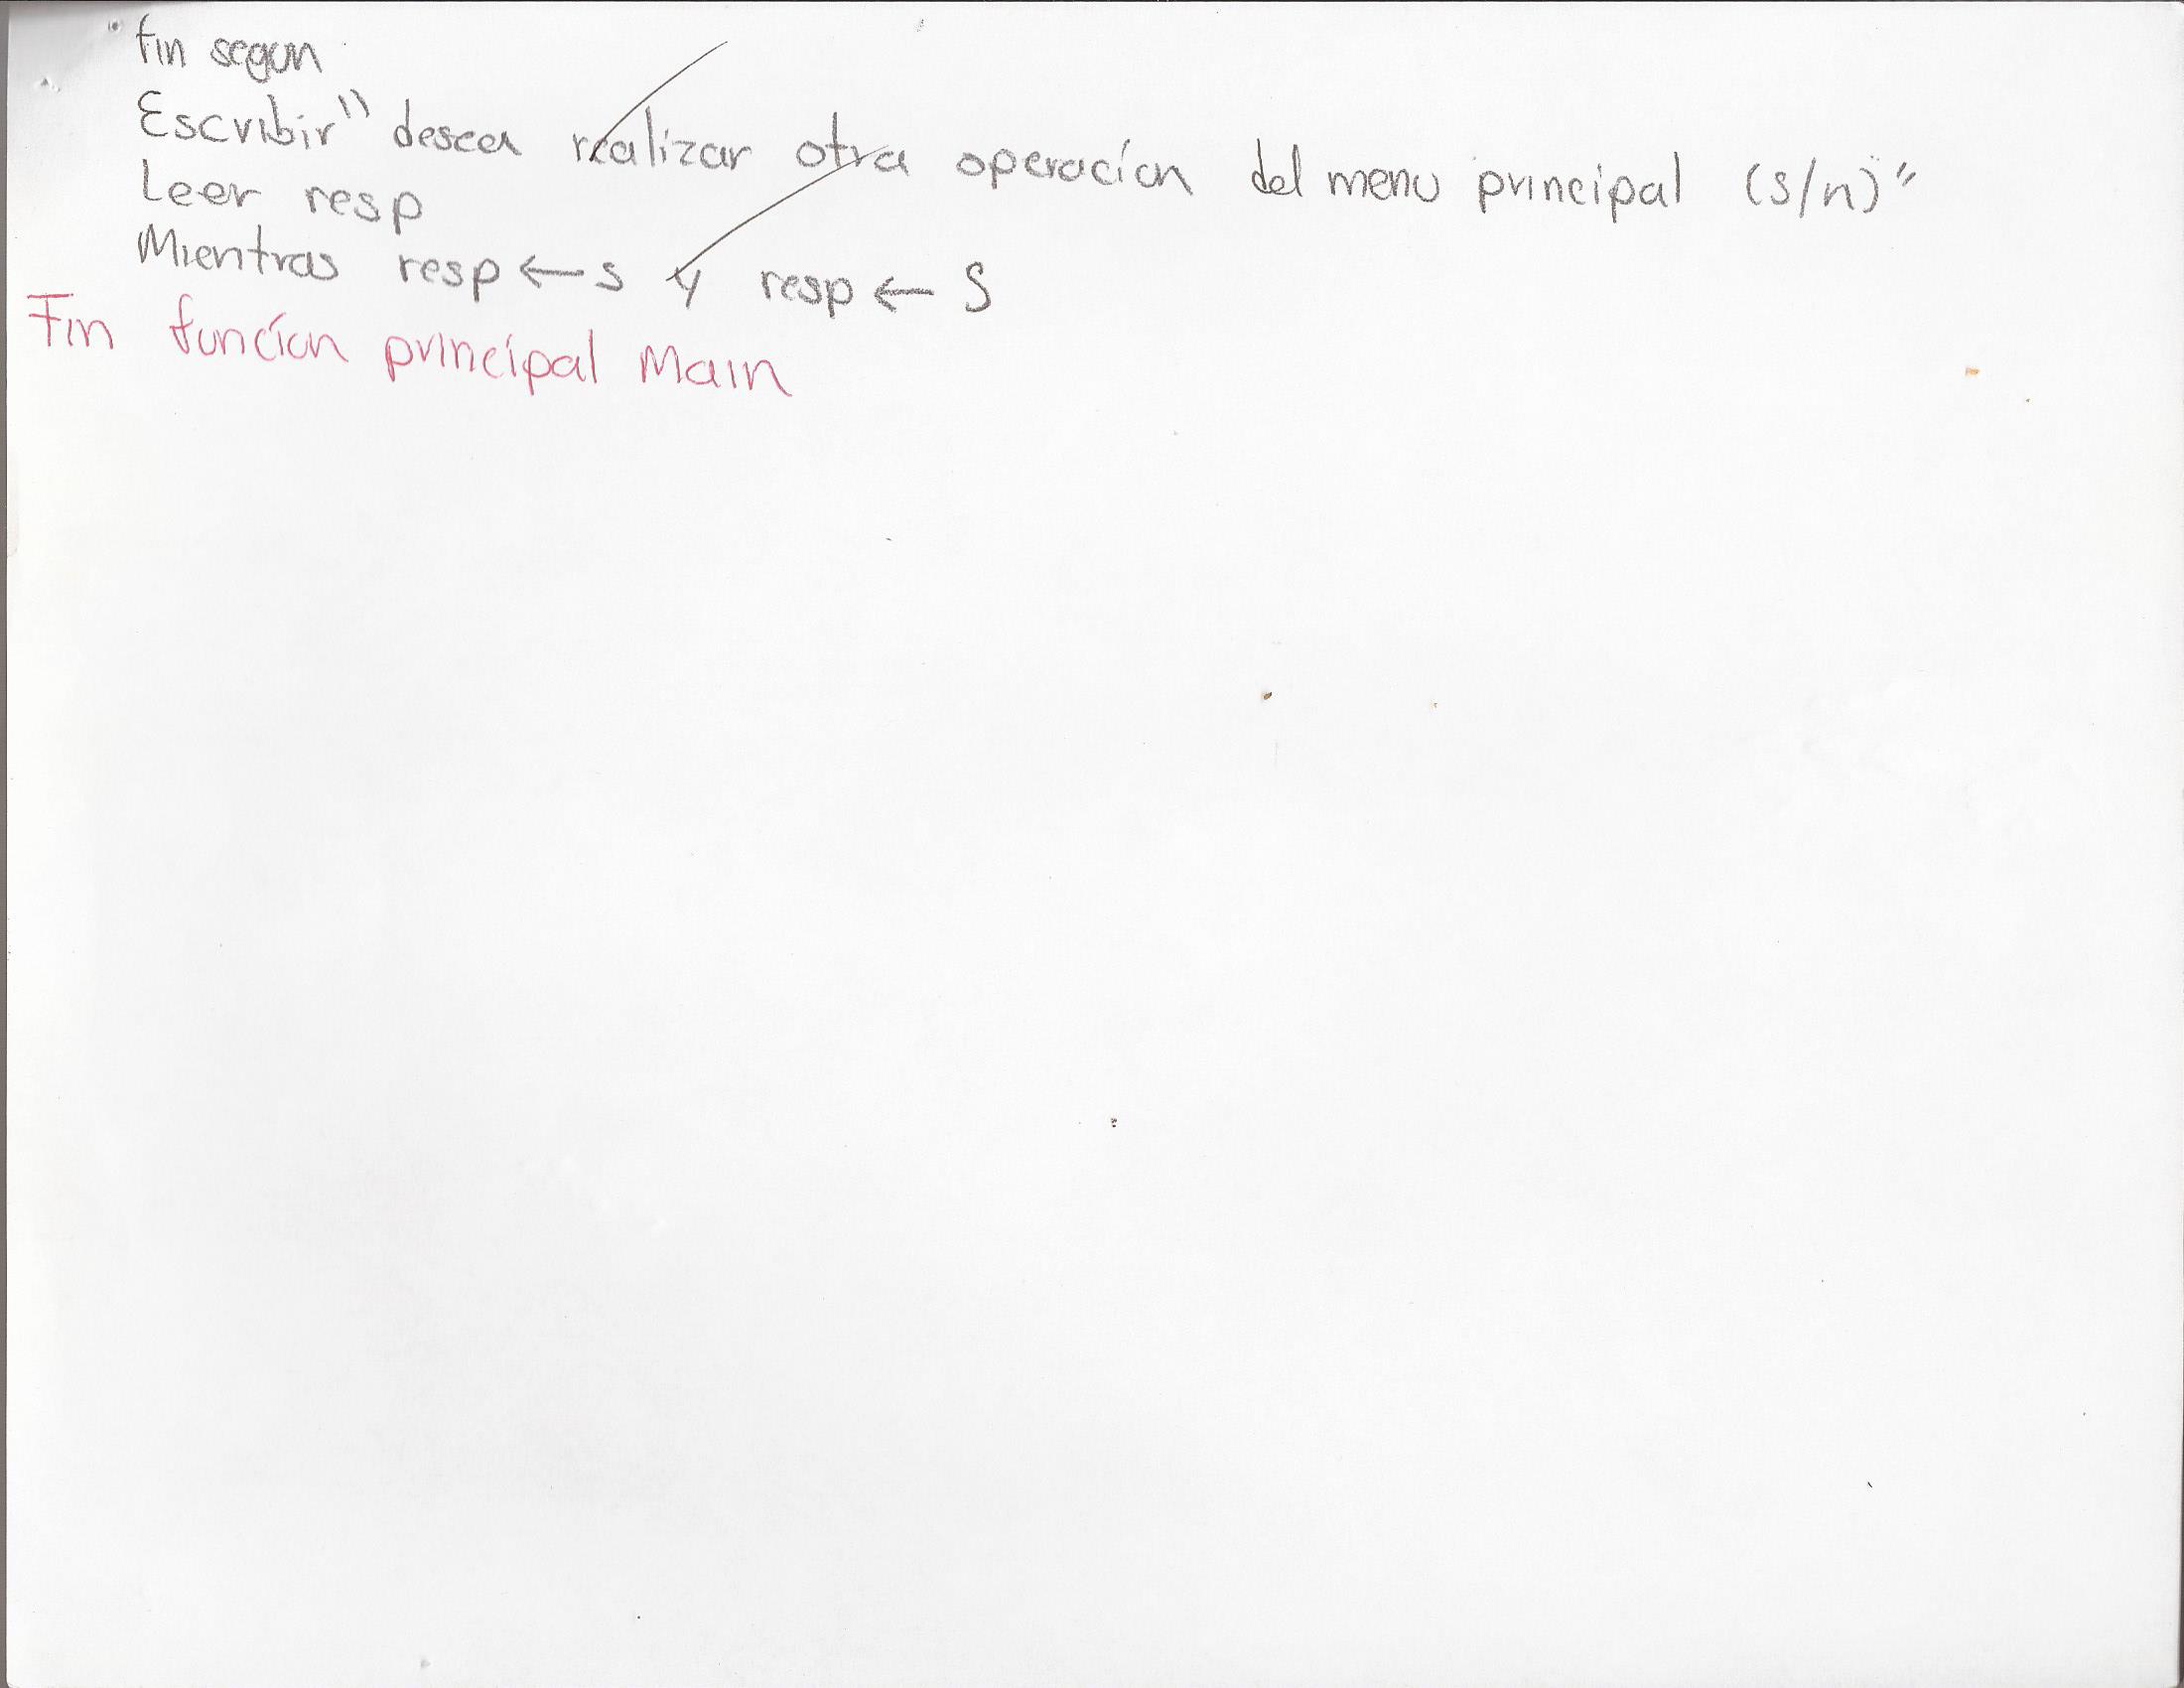 fin segun
Escribir" desea realizar otra operacíon del menu principal (s/n)"
Leer resp
Mientras resp ← s y resp ← S
Fin funcíon principal Main